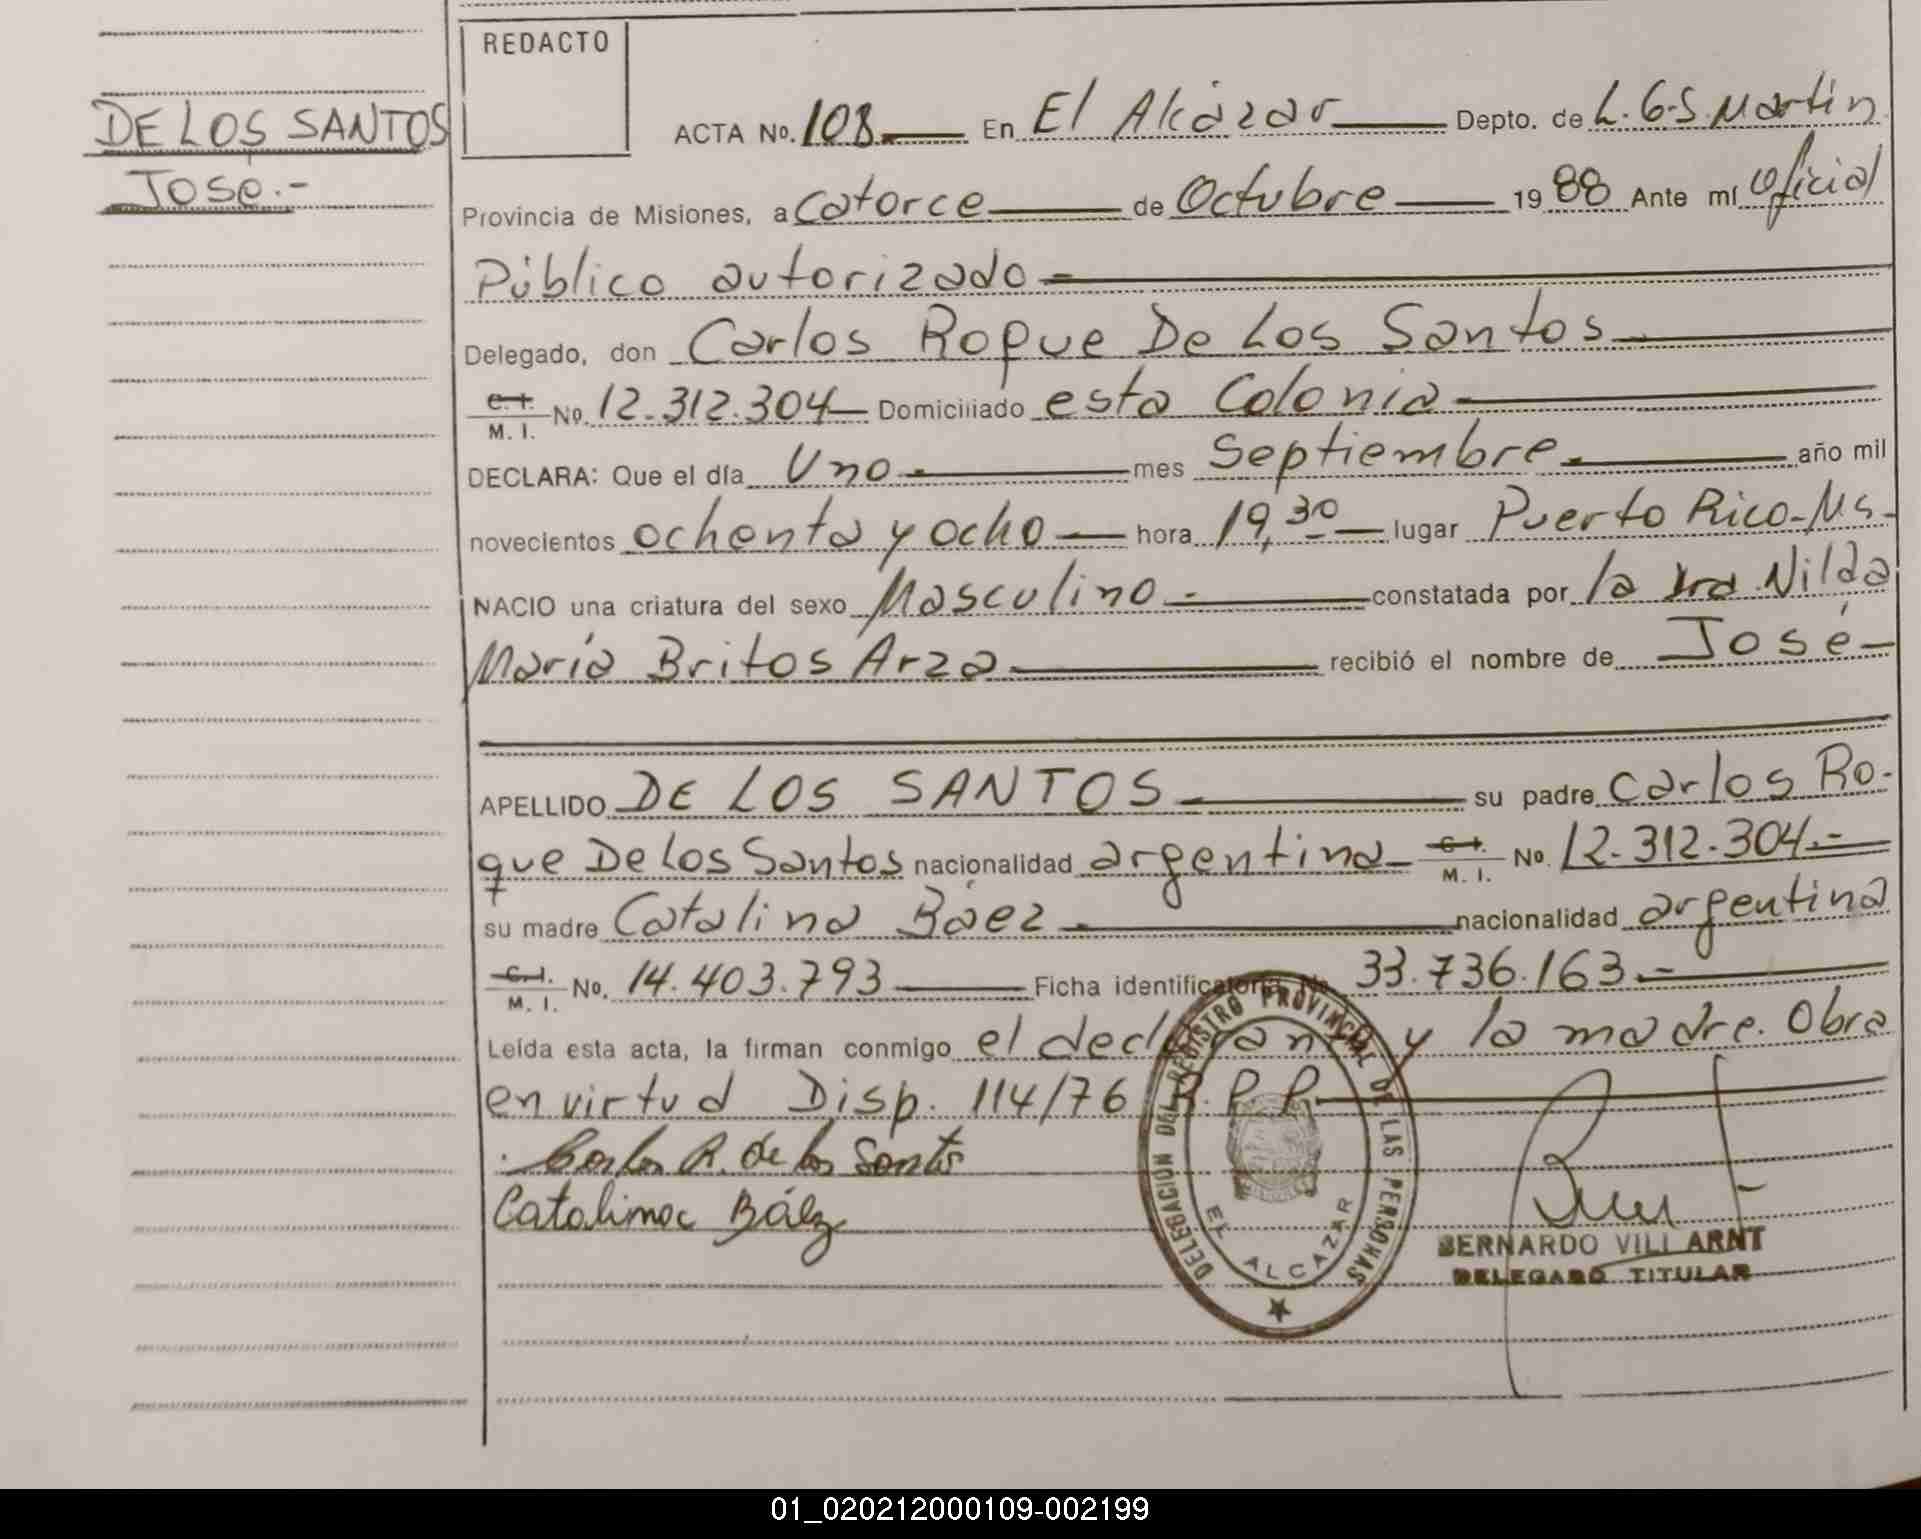 DE LOS SANTOS
José.-
REDACTO
ACTA No. 108 En El Alcázar Depto. de L. G. S. Martín
Provincia de Misiones, a catorce de Octubre 1988 Ante mí Oficial
Público autorizado
Delegado, don Carlos Roque De Los Santos
C. I. M. I. No. 12.312.304 Domiciliado esta Colonia
DECLARA: Que el día Uno mes Septiembre año mil
novecientos ochenta y ocho hora 19,30 lugar Puerto Rico-Ms-
NACIO una criatura del sexo Masculino.- constatada por la Nilda
María Britos Arza recibió el nombre de José-
APELLIDO DE LOS SANTOS su padre Carlos Ro-
que De Los Santos nacionalidad argentina C. I. M. I. No. 12.312.304.-
su madre Catalina Báez nacionalidad argentina
C. I. M. I. No. 14.403.793 Ficha identificatoria No. 33.736.163.-
Leída esta acta, la firman conmigo el declarante y la madre. Obra
en virtud Disp. 114/76 R. P. P.
Carlos R. de los Santos
Catalina Báez
DELEGACIÓN DEL REGISTRO PROVINCIAL DE LAS PERSONAS
EL ALCAZAR
BERNARDO VILLARNT
DELEGADO TITULAR
01_020212000109-002199